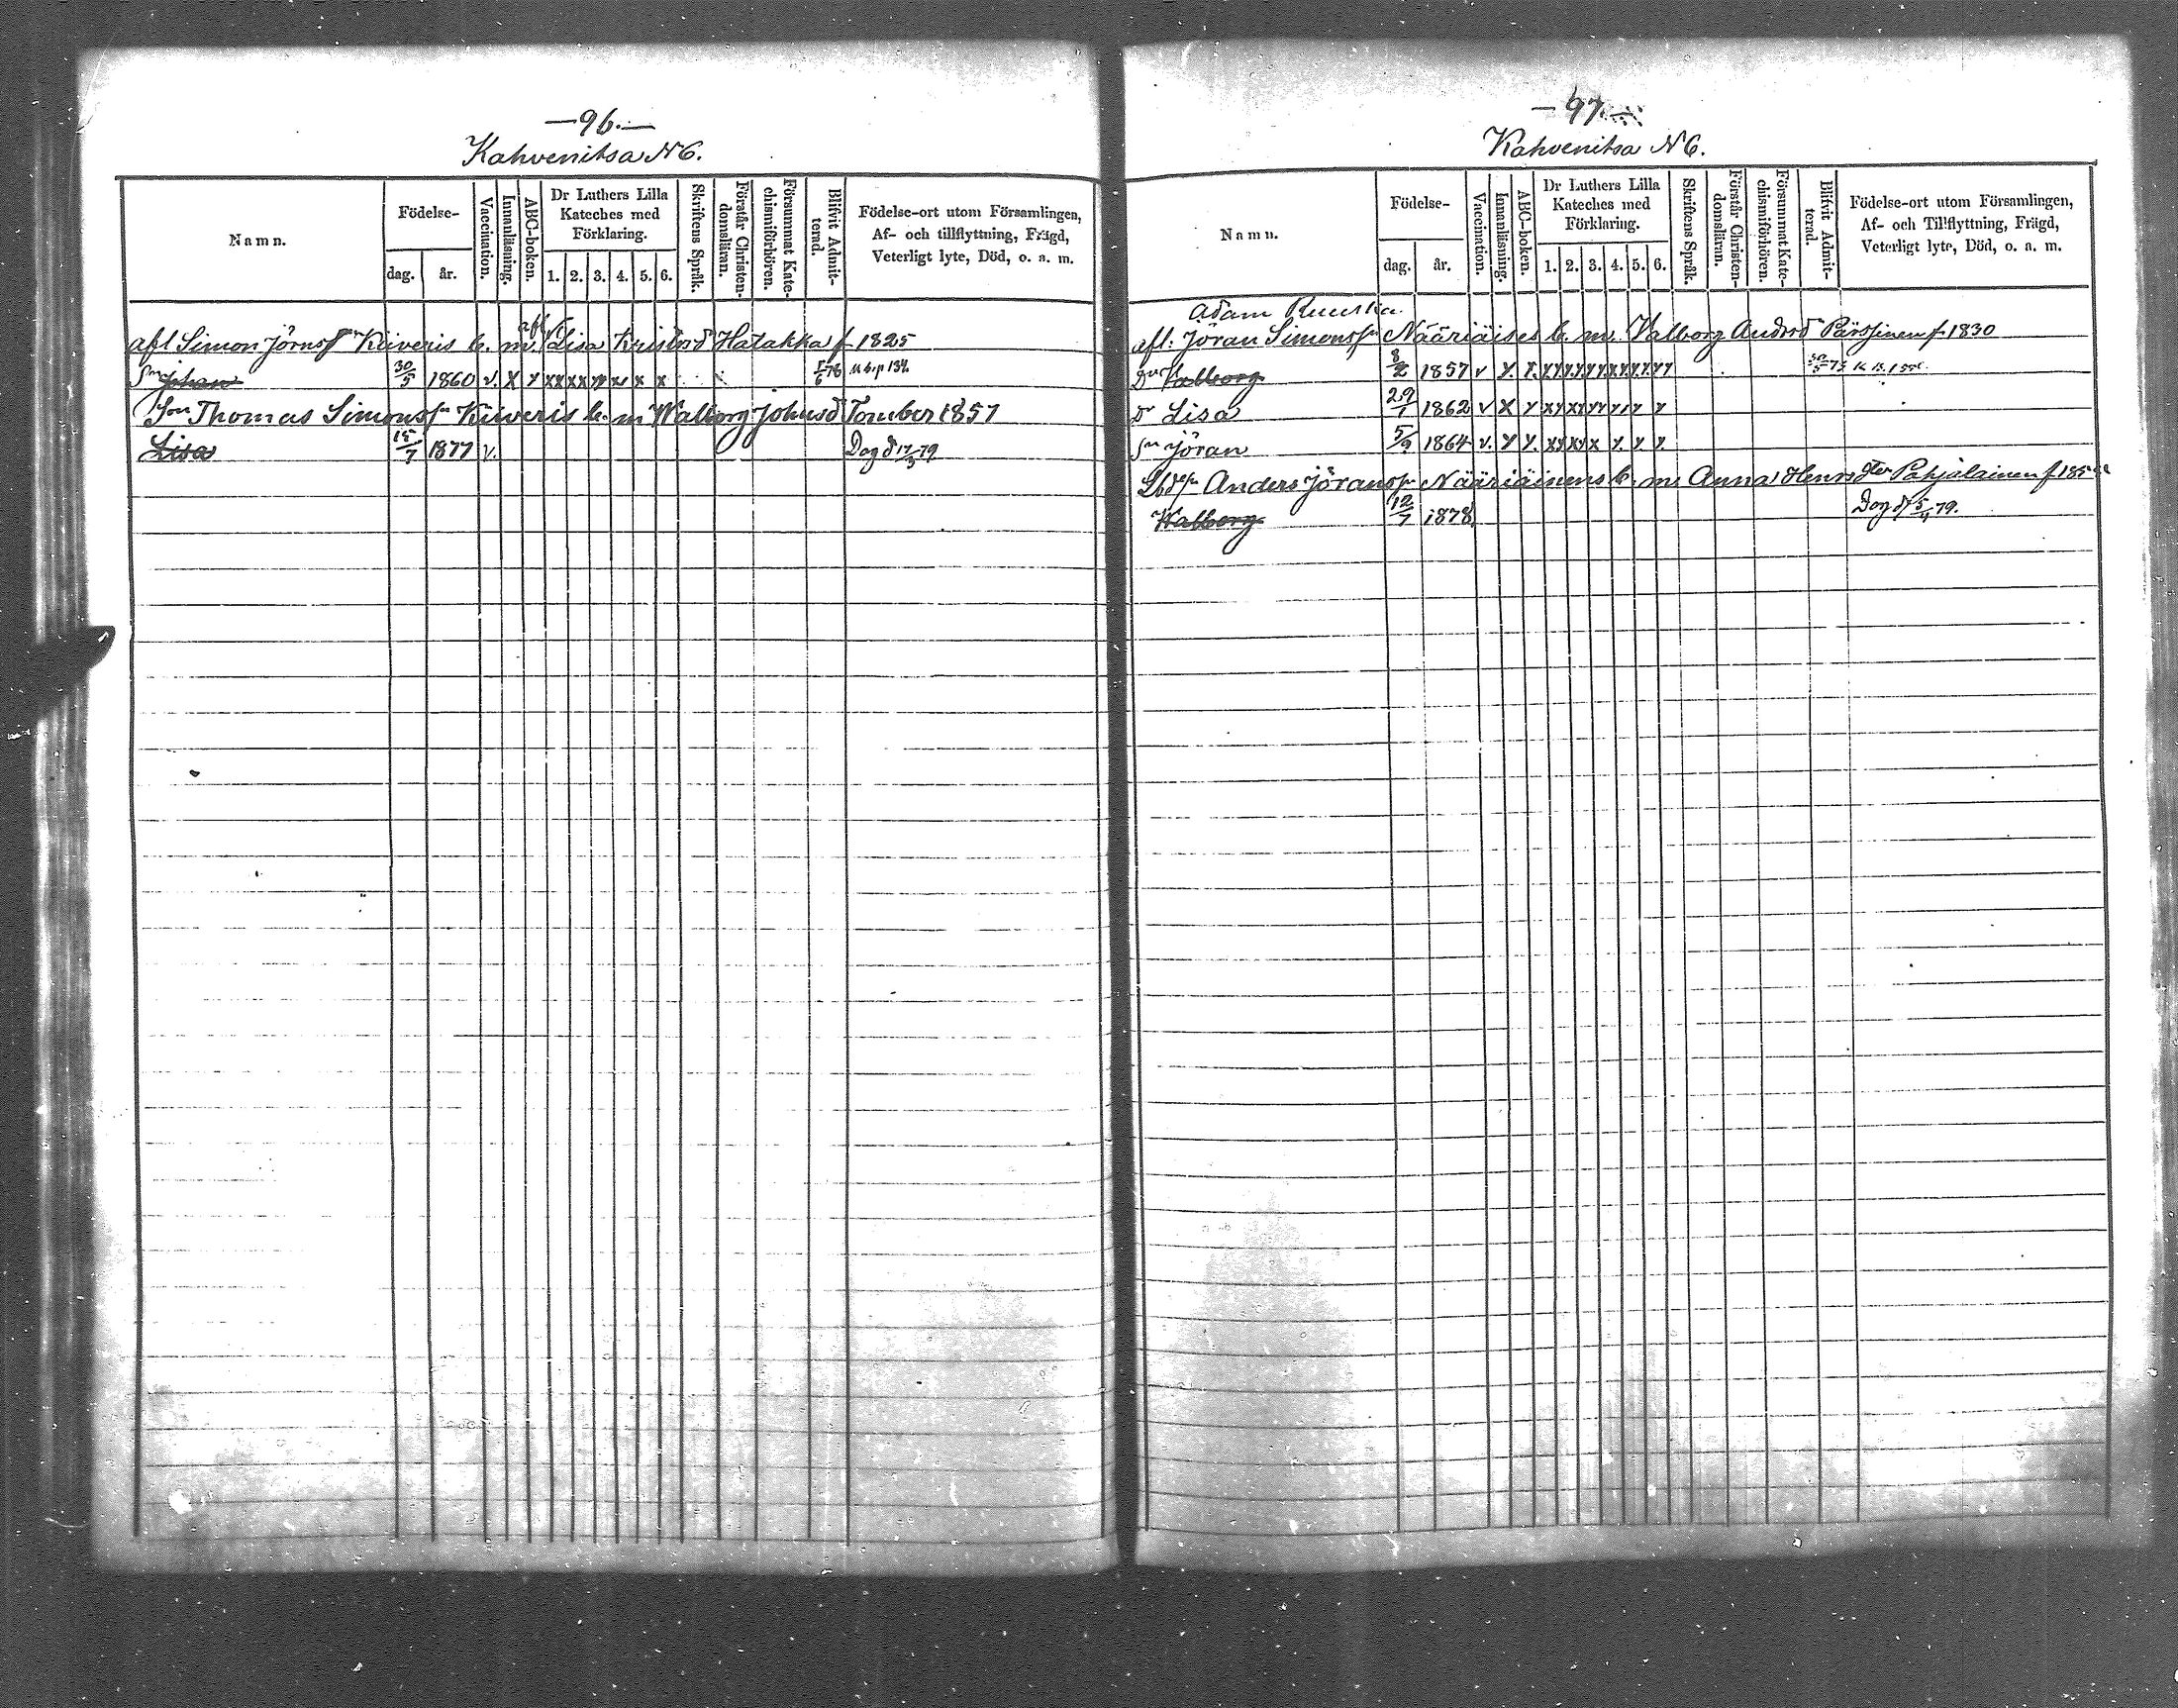 —96.—
Kahvenitsa N 6.
Namn.
Födelse-
dag.
år.
Vaccination.
Innanläsning.
ABC-boken.
Dr Luthers Lilla
Kateches med
Förklaring.
1. 2. 3. 4. 5. 6.
Skriftens Språk.
Förstår Christen-
domsläran.
Försummat Kate-
chismiförhören.
Blifvit Admit-
terad.
Födelse-ort utom Församlingen,
Af- och tillflyttning, Frägd,
Veterligt lyte, Död, o. a. m.
afl
afl Simon Jörnsf Kiiveris b. m. Lisa Kristord Hatakka f 1825
Sn Johan 30/5 1860 v. x y xx xx yy x x x 76 134.
Son Thomas Simonssn Kiiveris b. m Walborg Johnsd Tomber 1857
Lisa 15/7 1877 v. Dog d 17/3 79
—97.—
Kahvenitsa N 6.
Namn.
Födelse-
dag.
år.
Vaccination.
Innanläsning.
ABC-boken.
Dr Luthers Lilla
Kateches med
Förklaring.
1. 2. 3. 4. 5. 6.
Skriftens Språk.
Förstår Christen-
domsläran.
Försummat Kate-
chismiförhören.
Blifvit Admit-
terad.
Födelse-ort utom Församlingen,
Af- och Tillflyttning, Frägd,
Veterligt lyte, Död, o. a. m.
Adam Ruuska.
afl. Jöran Simonssn Nääriäises b. m. Valborg Andrsd Pärssinen f 1830
Dr Valborg 8/2 1857 v y. y.
dr Lisa 29/1 1862 v x y
sn Jöran 5/9 1864 v. y y.
Anders Jöranssn Nääriäinens b. m. Anna Henrsdter Pahjalainen f 185
Walborg 12/7 1878 Dog d 5/11 79.